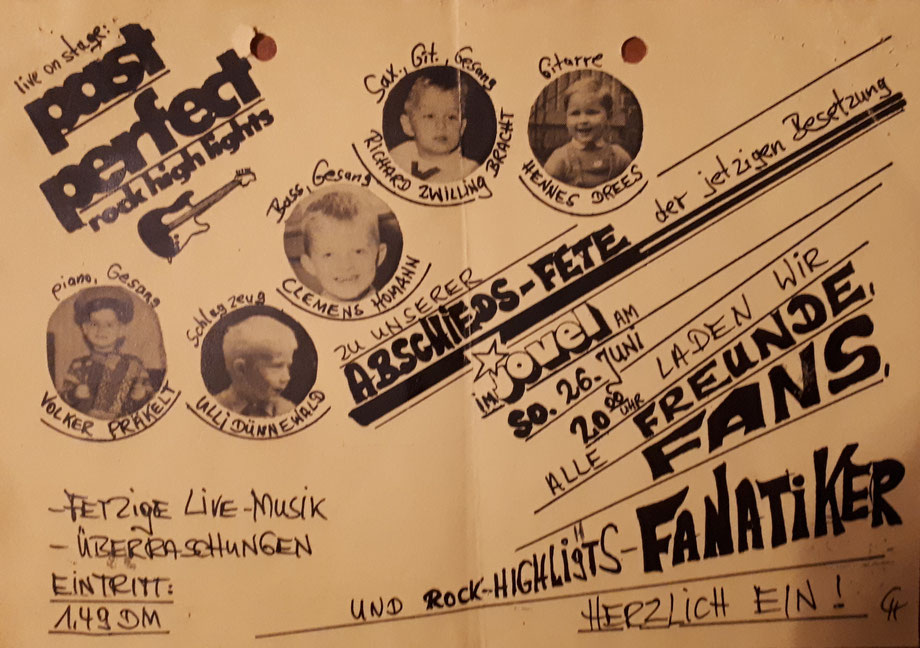 live on stage:
past
perfect
rock high lights
Sax., Git., Gesang
RICHARD ZWILLING BRACHT
Gitarre
HENNES DREES
Bass, Gesang
CLEMENS HOMANN
piano, Gesang
VOLKER PRÄKELT
Schlagzeug
ULLI DÜNNEWALD
ZU UNSERER
ABSCHIEDS-FÉTE der jetzigen Besetzung
IM Jovel AM
SO. 26. JUNI
20.00 UHR LADEN WIR
ALLE FREUNDE,
FANS,
UND ROCK-HIGHLIGTS-FANATIKER
HERZLICH EIN!
CH
-FETZIGE LIVE-MUSIK
-ÜBERRASCHUNGEN
EINTRITT:
1,49 DM